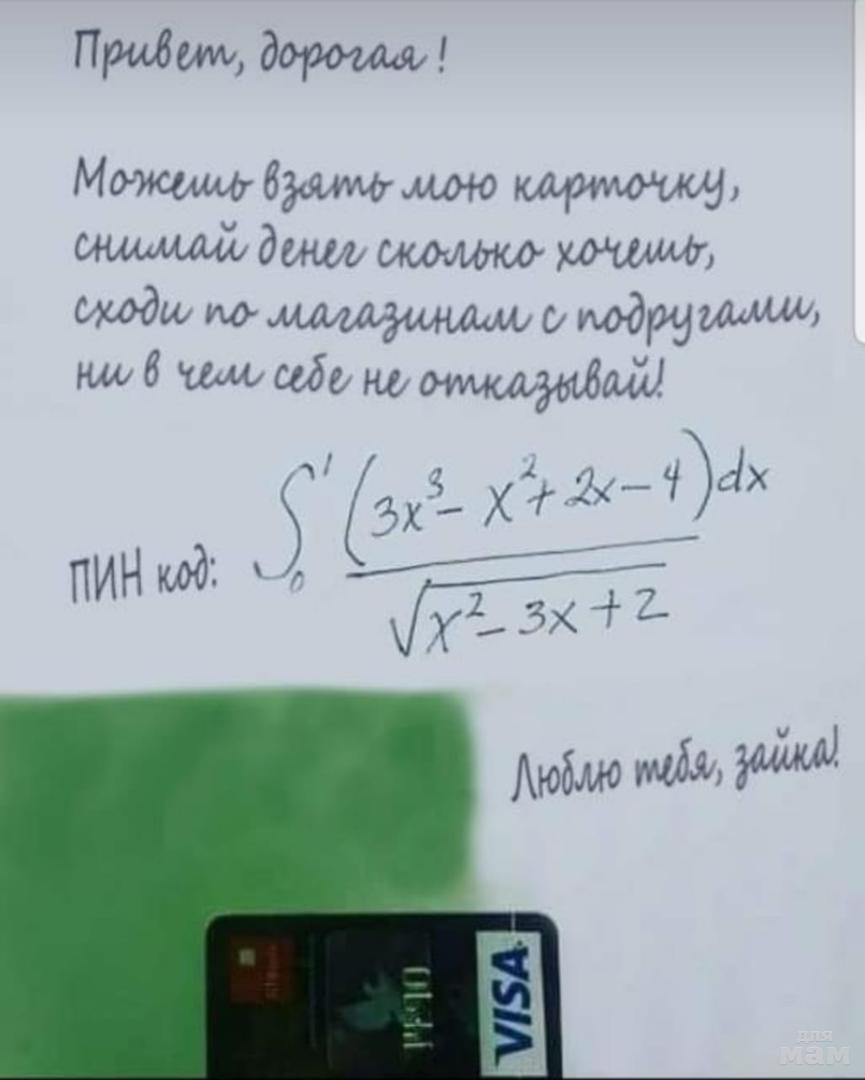 Привет, дорогая!
Можешь взять мою карточку,
снимай денег сколько хочешь,
сходи по магазинам с подругами,
ни в чем себе не отказывай!
ПИН код: ∫₀¹ (3x³ - x² + 2x - 4)dx / √(x² - 3x + 2)
Люблю тебя, зайка!
VISA
для
мам